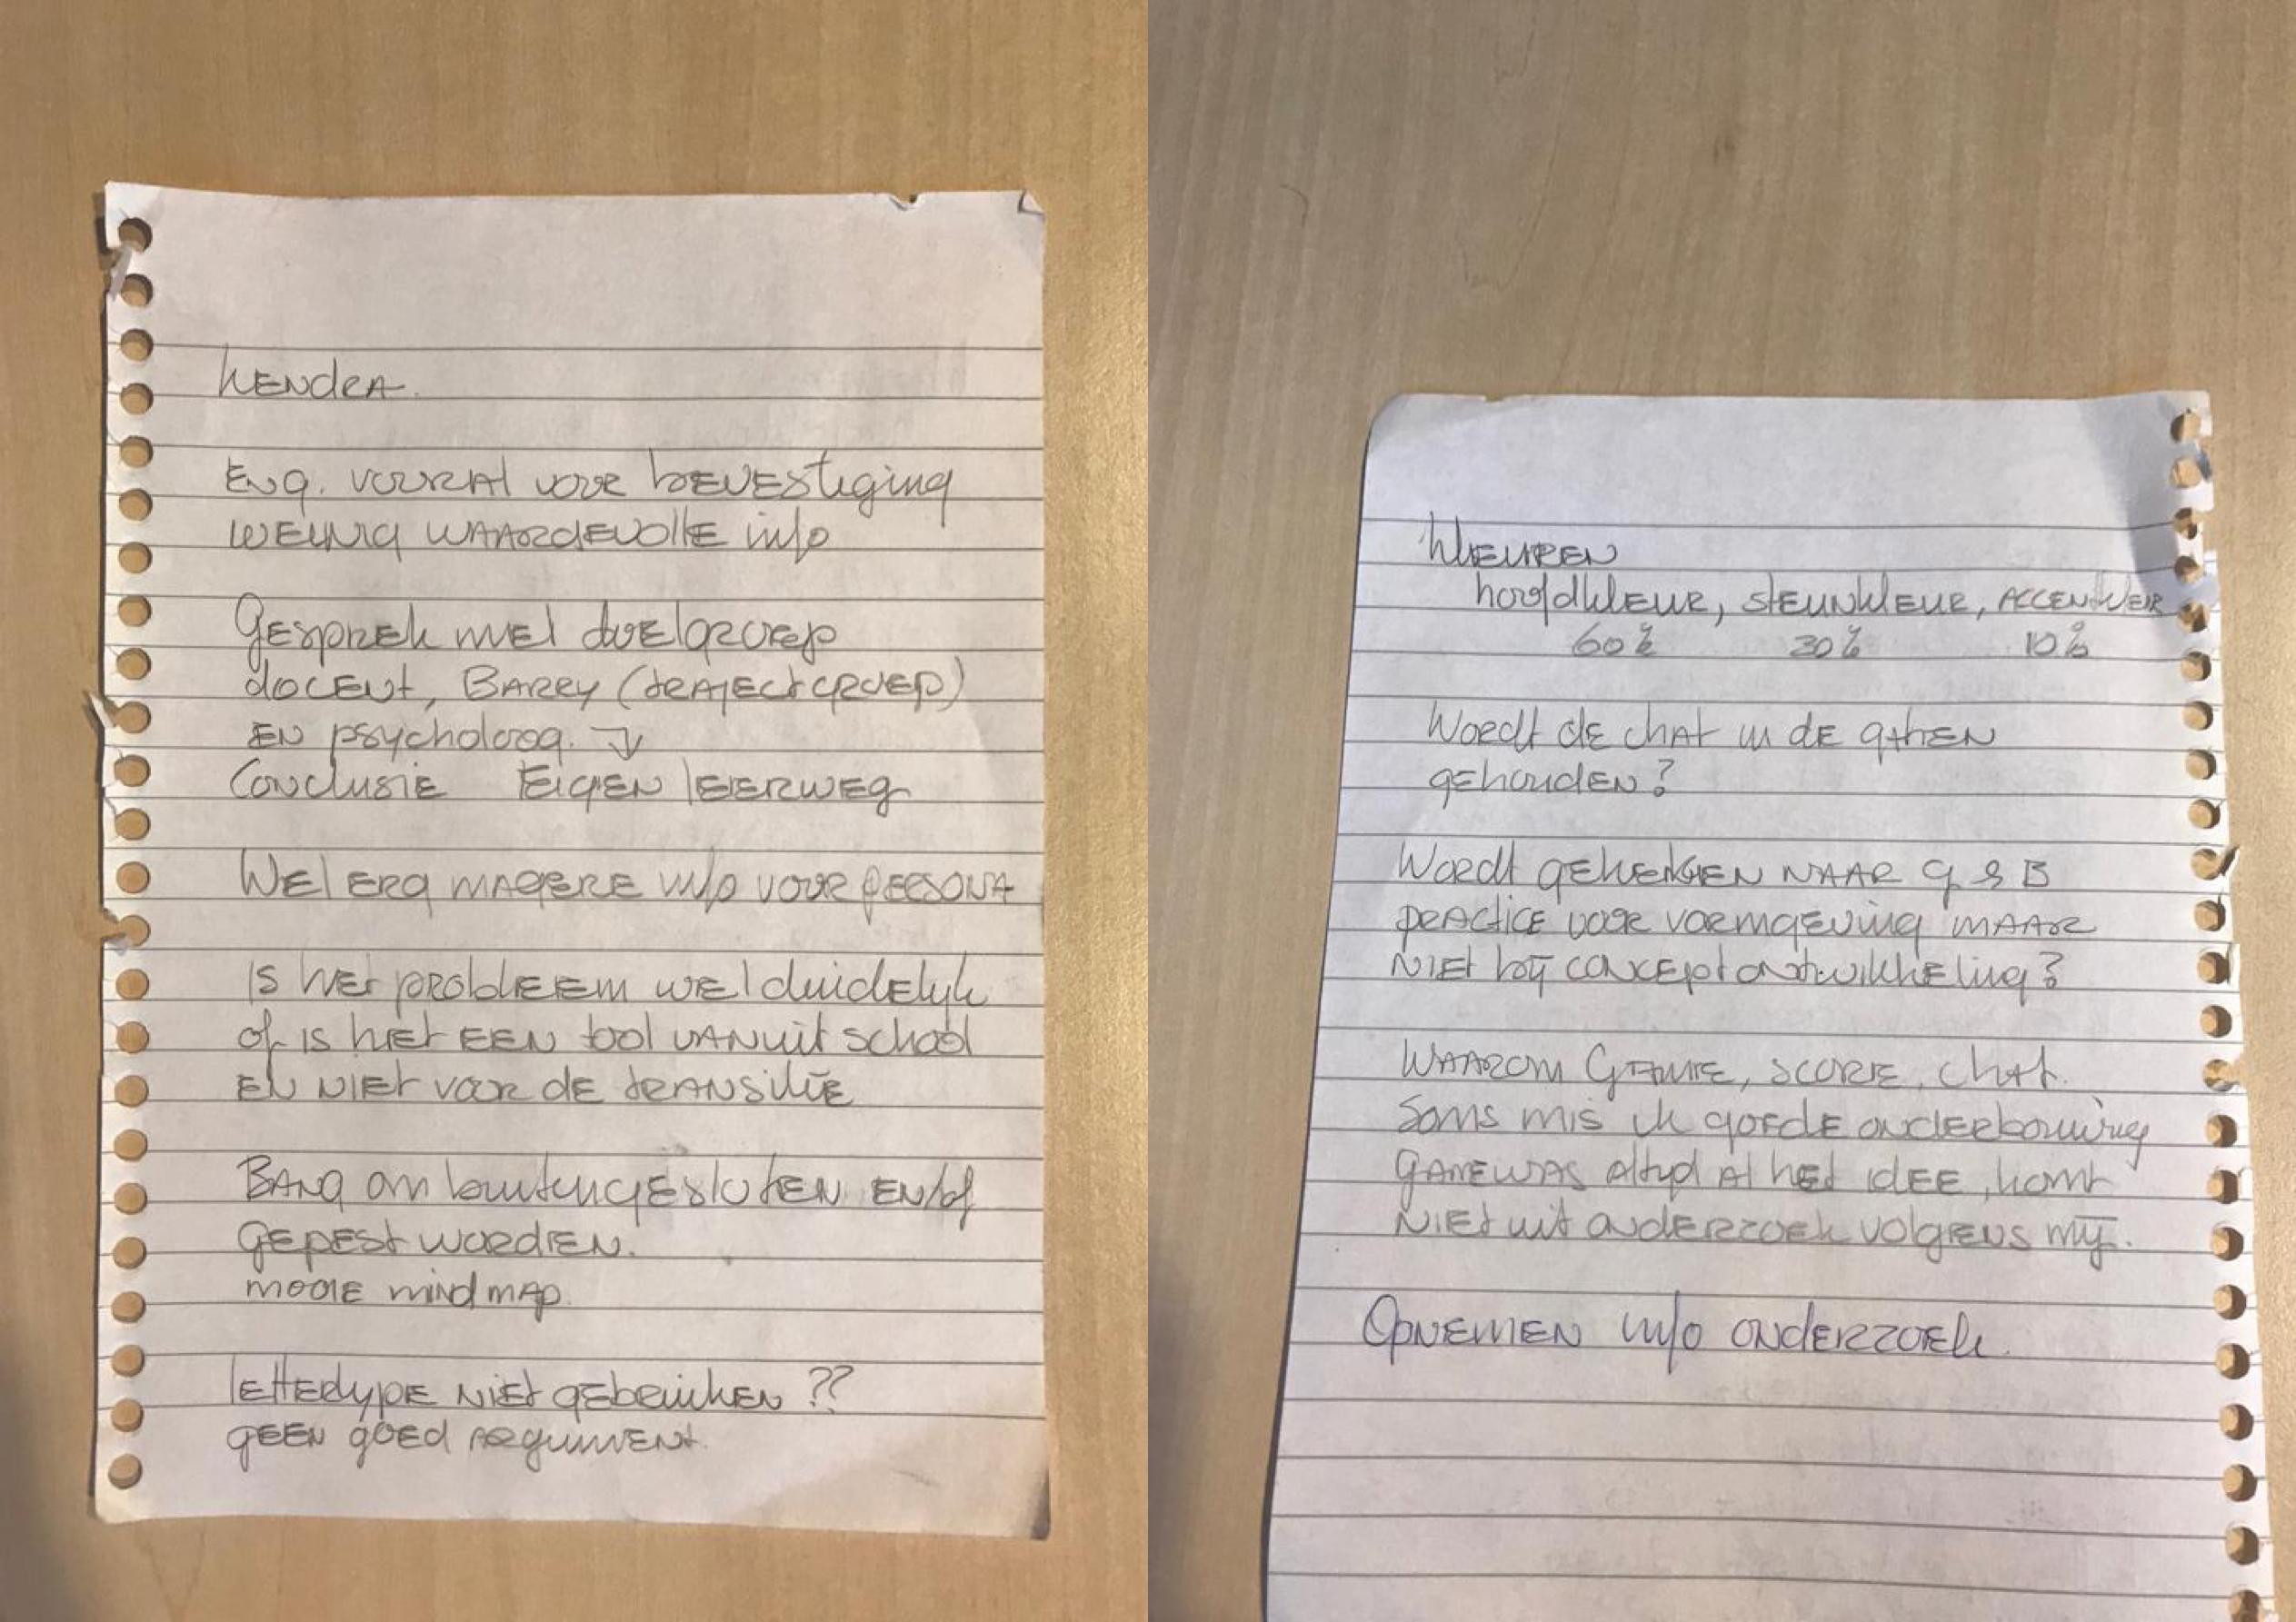 Kendra.
Enq. vooral voor bevestiging
weinig waardevolle info
Gesprek met doelgroep
docent, Barry (trajectgroep)
en psycholoog. ↴
Conclusie Eigen leerweg
Wel erg magere info voor persona
Is het probleem wel duidelijk
of is het een tool vanuit school
en niet voor de transitie
Bang om buitengesloten en/of
gepest worden.
mooie mindmap.
lettertype niet gebruiken ??
geen goed argument.
Kleuren
hoofdkleur, steunkleur, accentkleur
60% 30% 10%
Wordt de chat in de gaten
gehouden?
Wordt gekeken naar g & B
practice voor vormgeving maar
niet bij conceptontwikkeling?
Waarom Game, score, chat.
Soms mis ik goede onderbouwing
Game was altijd al het idee, komt
niet uit onderzoek volgens mij.
Opnemen info onderzoek.